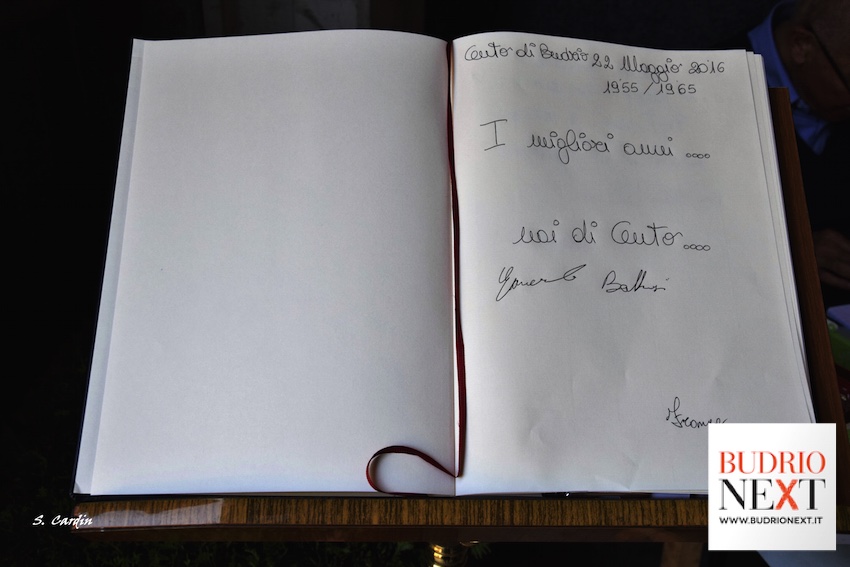 Cento di Budrio 22 Maggio 2016
1955/1965
I migliori anni ....
noi di Cento....
S. Cardin
BUDRIO
NEXT
WWW.BUDRIONEXT.IT